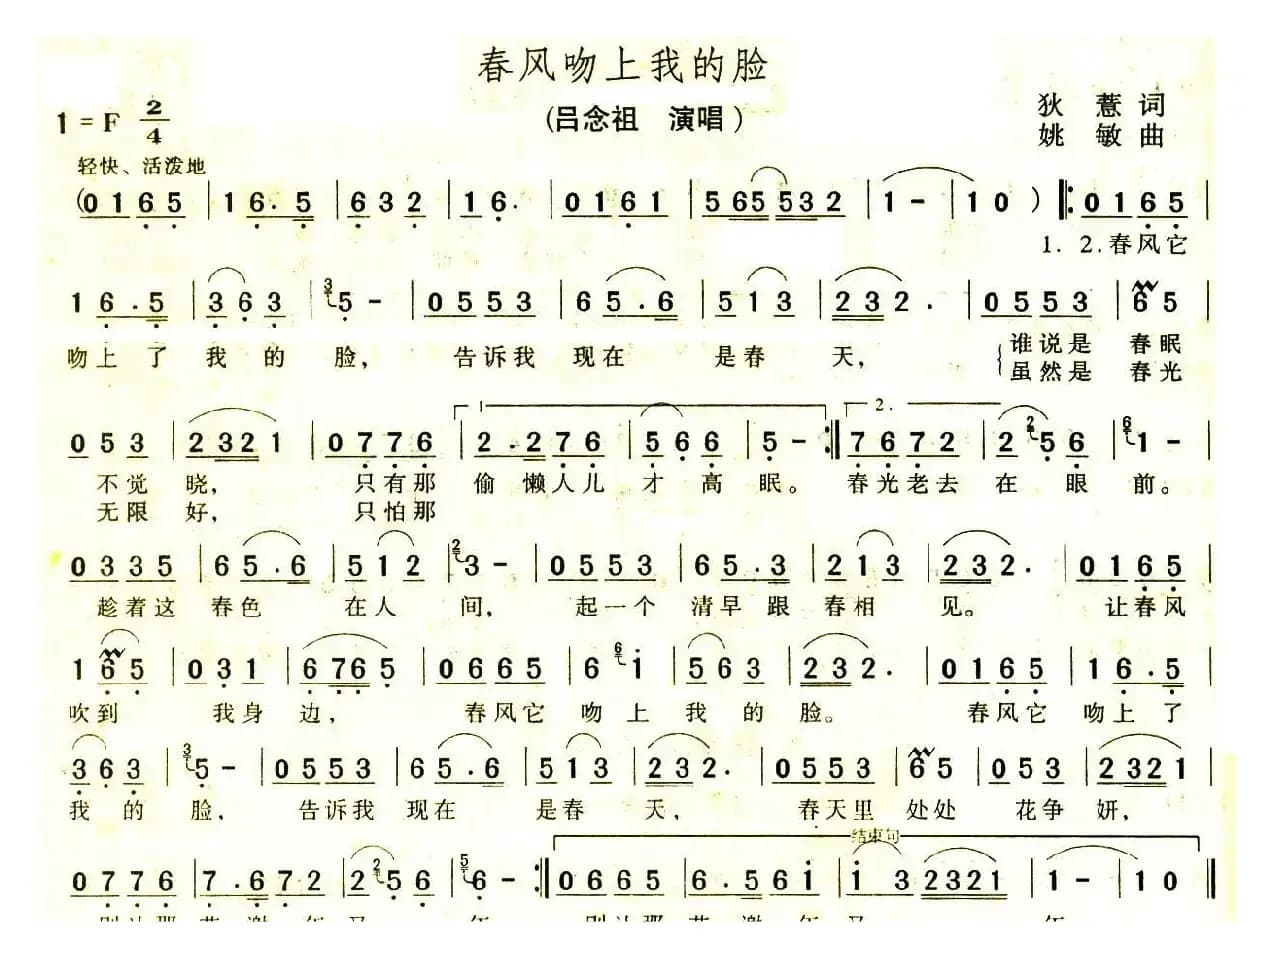 春风吻上我的脸
(吕念祖 演唱)
狄薏词
姚敏曲
1=F 2/4
轻快、活泼地
(0 1 6 5 | 1 6 . 5 | 6 3 2 | 1 6 . | 0 1 6 1 | 5 6 5 5 3 2 | 1 - | 1 0 ) ‖: 0 1 6 5 |
1. 2.春风它
1 6 . 5 | 3 6 3 | 3 5 - | 0 5 5 3 | 6 5 . 6 | 5 1 3 | 2 3 2 . | 0 5 5 3 | 6 5 |
吻上了 我的 脸, 告诉我 现在 是春 天, 谁说是 春眠
虽然是 春光
0 5 3 | 2 3 2 1 | 0 7 7 6 | 1 2 . 2 7 6 | 5 6 6 | 5 - :‖ 2. 7 6 7 2 | 2 2 5 6 | 6 1 - |
不觉 晓, 只有那 偷懒人儿 才高 眠。 春光老去 在眼 前。
无限 好, 只怕那
0 3 3 5 | 6 5 . 6 | 5 1 2 | 2 3 - | 0 5 5 3 | 6 5 . 3 | 2 1 3 | 2 3 2 . | 0 1 6 5 |
趁着这 春色 在人 间, 起一个 清早跟 春相 见。 让春风
1 6 5 | 0 3 1 | 6 7 6 5 | 0 6 6 5 | 6 6 i | 5 6 3 | 2 3 2 . | 0 1 6 5 | 1 6 . 5 |
吹到 我身 边, 春风它 吻上 我的 脸。 春风它 吻上了
3 6 3 | 3 5 - | 0 5 5 3 | 6 5 . 6 | 5 1 3 | 2 3 2 . | 0 5 5 3 | 6 5 | 0 5 3 | 2 3 2 1 |
我的 脸, 告诉我 现在 是春 天, 春天里 处处 花争 妍,
结束句
0 7 7 6 | 7 . 6 7 2 | 2 2 5 6 | 5 6 - :‖ 0 6 6 5 | 6 . 5 6 i | i 3 2 3 2 1 | 1 - | 1 0 ‖